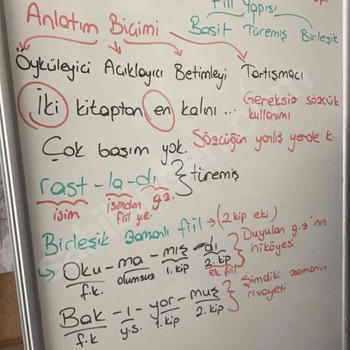 Fiil Yapısı
Anlatım Biçimi
Basit Türemiş Birleşik
Öyküleyici Açıklayıcı Betimleyi Tartışmacı
İki kitaptan en kalını ... Gereksiz sözcük kullanımı
Çok başım yok. Sözcüğün yanlış yerde k.
rast-la-dı } türemiş
isim isimden fiil y.e. g.z.
Birleşik zamanlı fiil → (2 kip eki)
Oku-ma-mış-dı } Duyulan g.z'nın hikâyesi
f.k. olumsuz 1.kip 2.kip ek fiil
Bak-ı-yor-muş } Şimdiki zamanın rivayeti
f.k y.s. 1.kip 2.kip